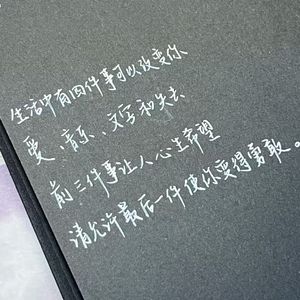 生活中有四件事可以改变你
爱、音乐、文字和失去
前三件事让人心生希望
请允许最后一件使你变得勇敢。